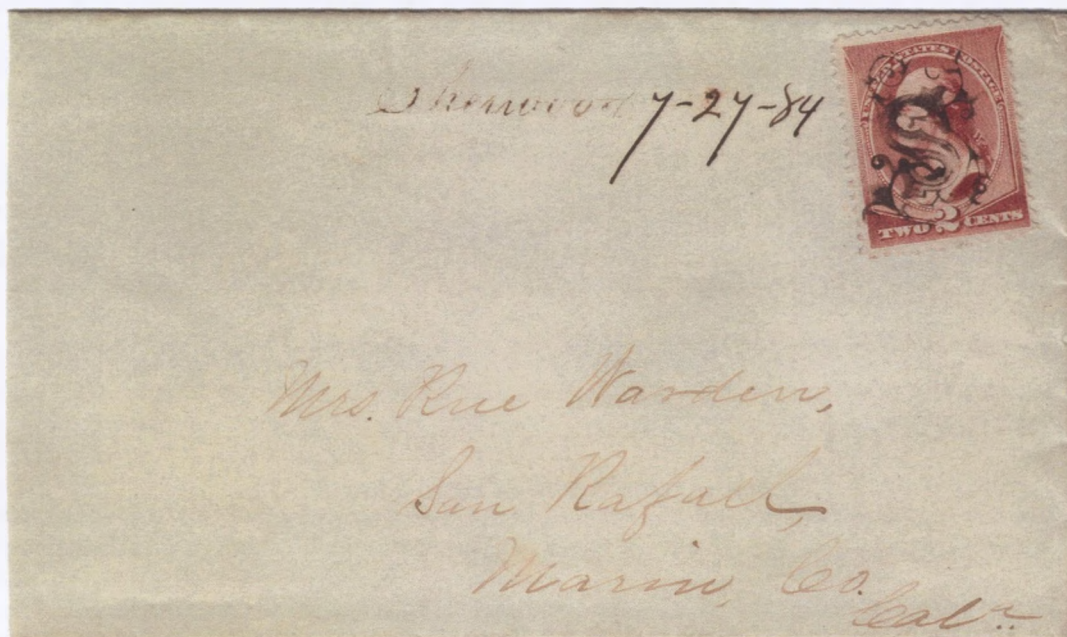 Sherwood 7-27-84
UNITED STATES POSTAGE
TWO 2 CENTS
Mrs. Rue Warden,
San Rafall,
Marin, Co.
Cala..